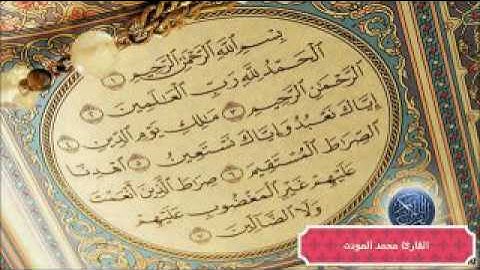 بِسْمِ اللَّهِ الرَّحْمَٰنِ الرَّحِيمِ ١
الْحَمْدُ لِلَّهِ رَبِّ الْعَالَمِينَ ٢
الرَّحْمَٰنِ الرَّحِيمِ ٣ مَالِكِ يَوْمِ الدِّينِ ٤
إِيَّاكَ نَعْبُدُ وَإِيَّاكَ نَسْتَعِينُ ٥ اهْدِنَا
الصِّرَاطَ الْمُسْتَقِيمَ ٦ صِرَاطَ الَّذِينَ أَنْعَمْتَ
عَلَيْهِمْ غَيْرِ الْمَغْضُوبِ عَلَيْهِمْ
وَلَا الضَّالِّينَ ٧
القارئ محمد